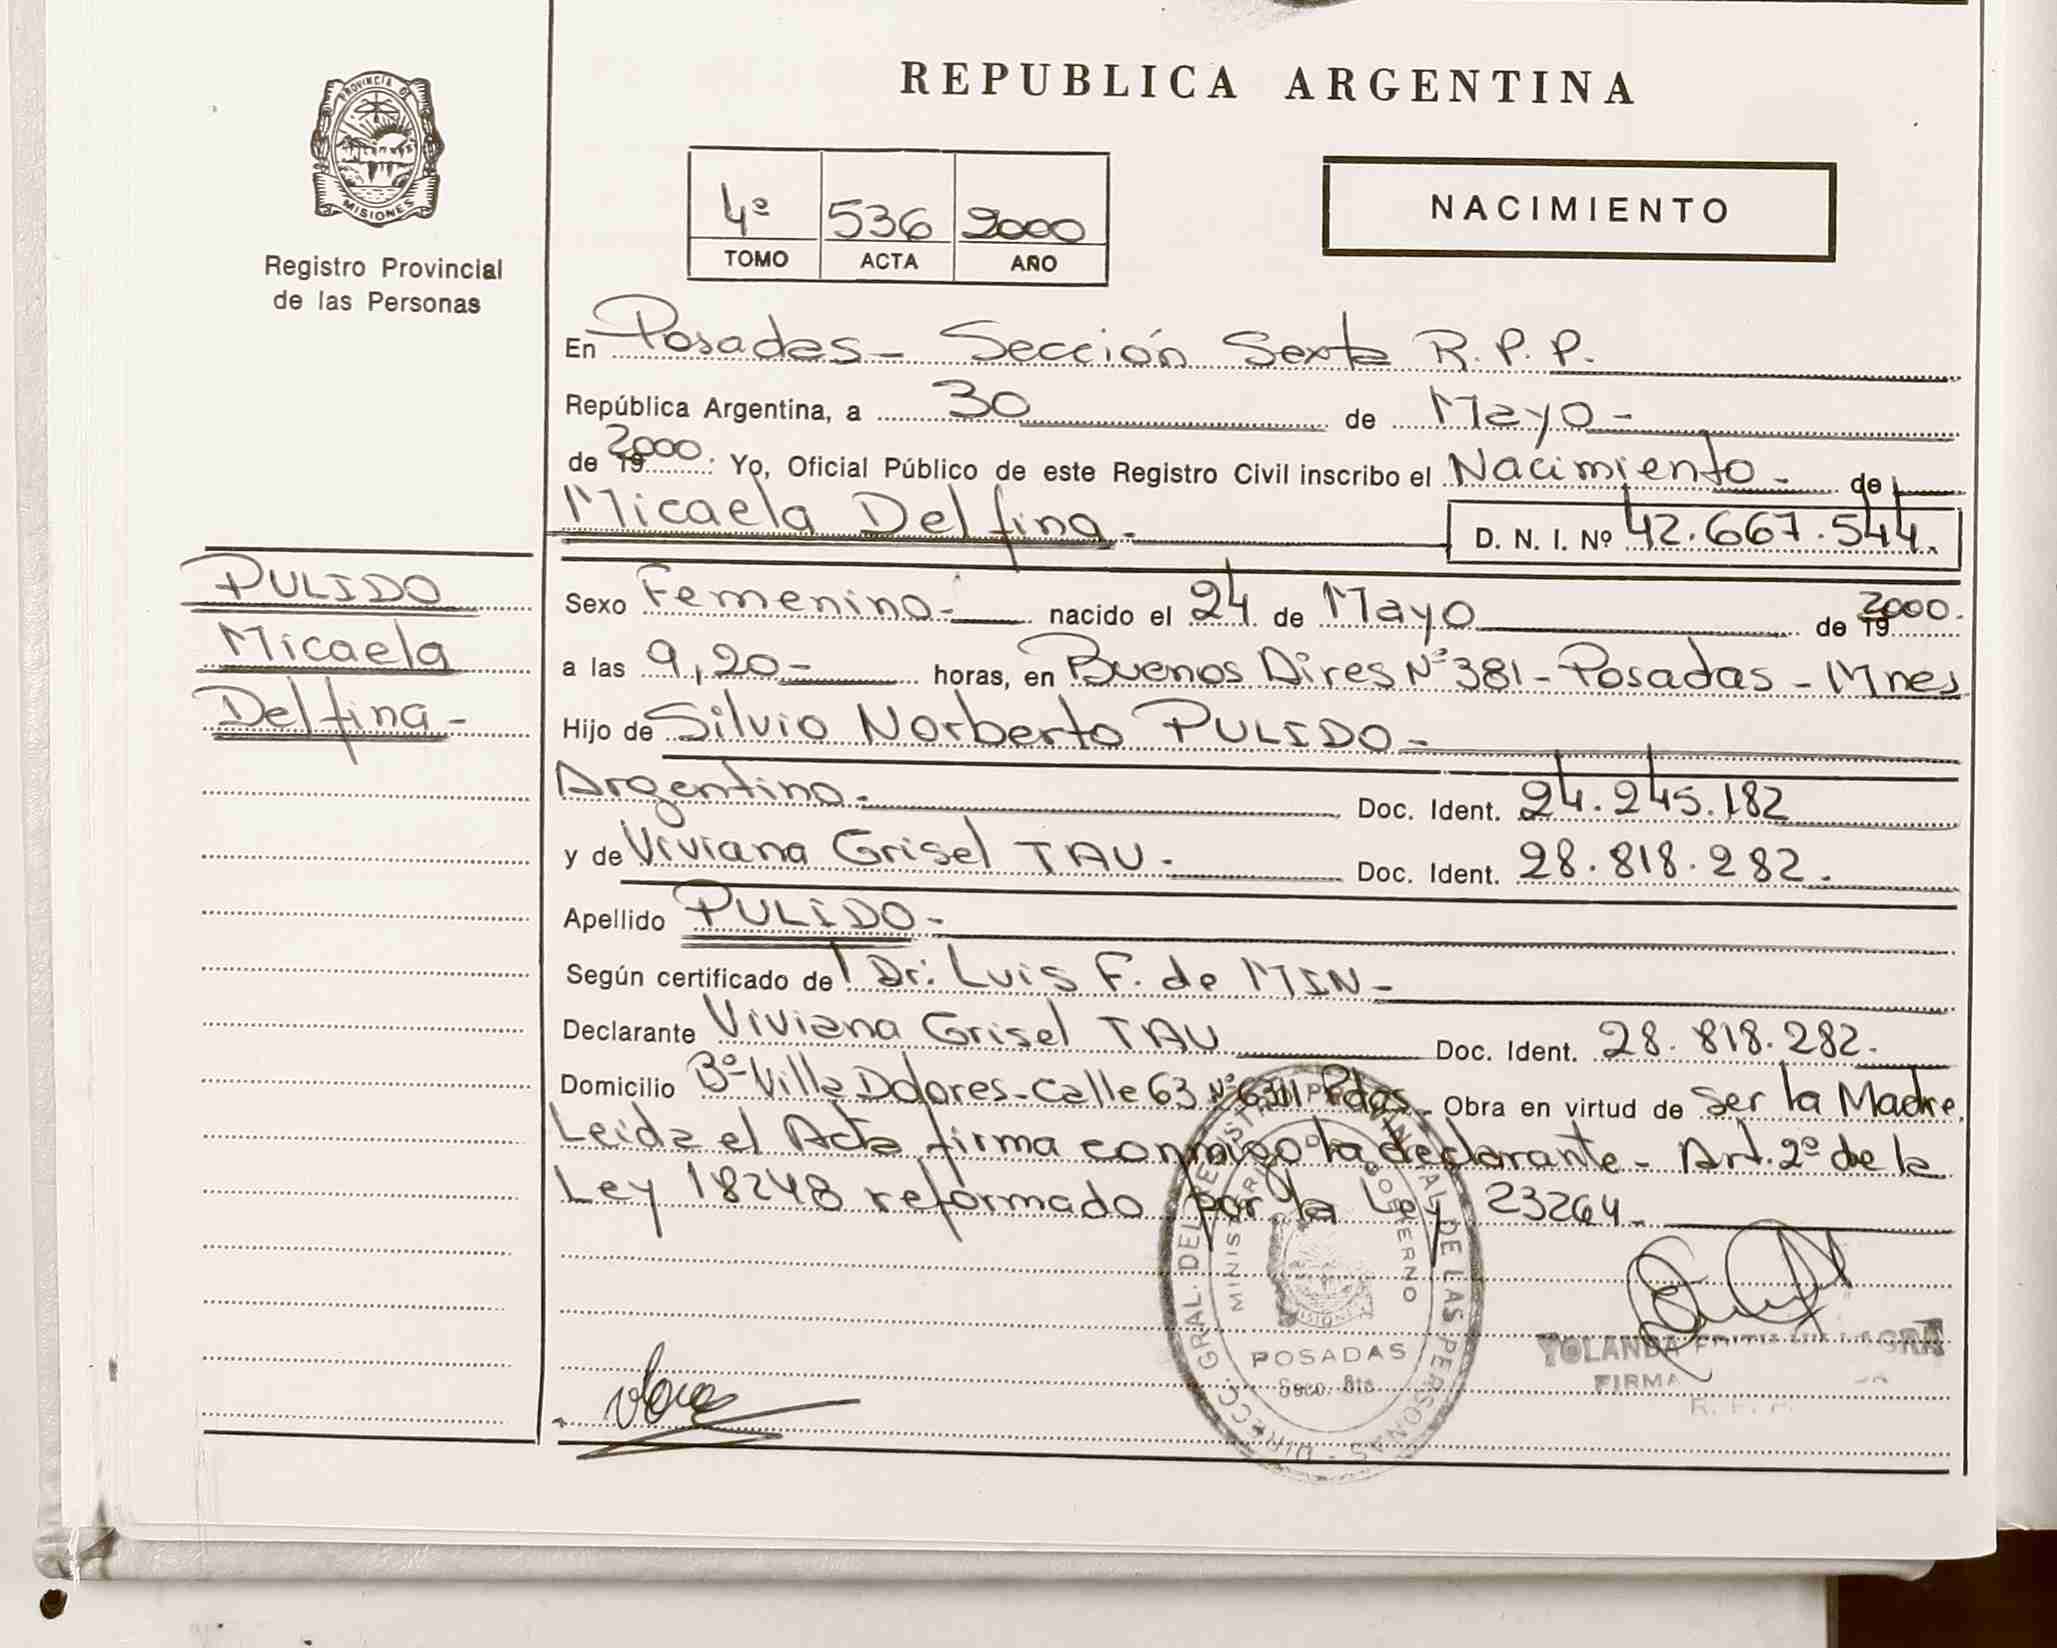 REPUBLICA ARGENTINA
PROVINCIA DE
MISIONES
Registro Provincial
de las Personas
4º 536 2000
TOMO ACTA AÑO
NACIMIENTO
En Posadas - Sección Sexta R.P.P.
República Argentina, a 30 de Mayo -
de 19 2000. Yo, Oficial Público de este Registro Civil inscribo el Nacimiento - de
Micaela Delfina -
D. N. I. Nº 42.667.544.
PULIDO
Micaela
Delfina -
Sexo Femenino - nacido el 24 de Mayo de 19 2000.
a las 9,20 - horas, en Buenos Aires Nº 381 - Posadas - Mnes
Hijo de Silvio Norberto PULIDO -
Argentino - Doc. Ident. 24.245.182
y de Viviana Grisel TAU - Doc. Ident. 28.818.282.
Apellido PULIDO -
Según certificado de Dr: Luis F. de MIN -
Declarante Viviana Grisel TAU Doc. Ident. 28.818.282.
Domicilio Bº Villa Dolores - Calle 63 Nº 6311 Pdas - Obra en virtud de Ser la Madre.
Leida el Acta firma conmigo la declarante - Art. 2º de la
Ley 18248 reformado por la Ley 23264.
DIRECC. GRAL. DEL REGISTRO PROVINCIAL DE LAS PERSONAS
MINISTERIO DE GOBIERNO
POSADAS
Secc. 6ta
YOLANDA
FIRMA
R. P. P.